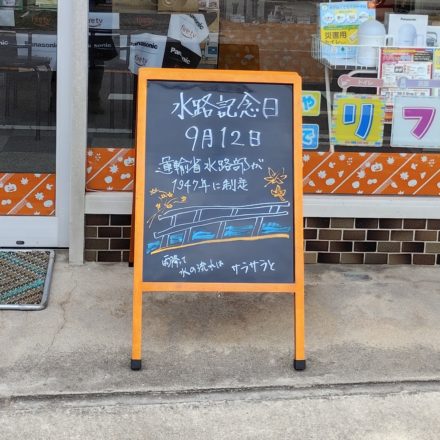 水路記念日
9月12日
運輸省水路部が
1947年に制定
水の流れは
サラサラと
Panasonic
Panasonic
災害用
リフ